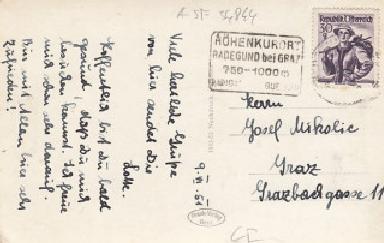 A-ST-14844
HÖHENKURORT
RADEGUND bei GRAZ
750-1000m
Republik Österreich
30
9.VI.61
Viele herzliche Grüße
von hier sendet Dir
Lotte.
Hoffentlich bist Du bald
gesund, dass Du mich
besuchen kannst. Ich freue
mich schon sehr darauf.
Bin mit Allem hier sehr
zufrieden!
Herrn
Josef Mikolic
Graz
Grazbachgasse 11